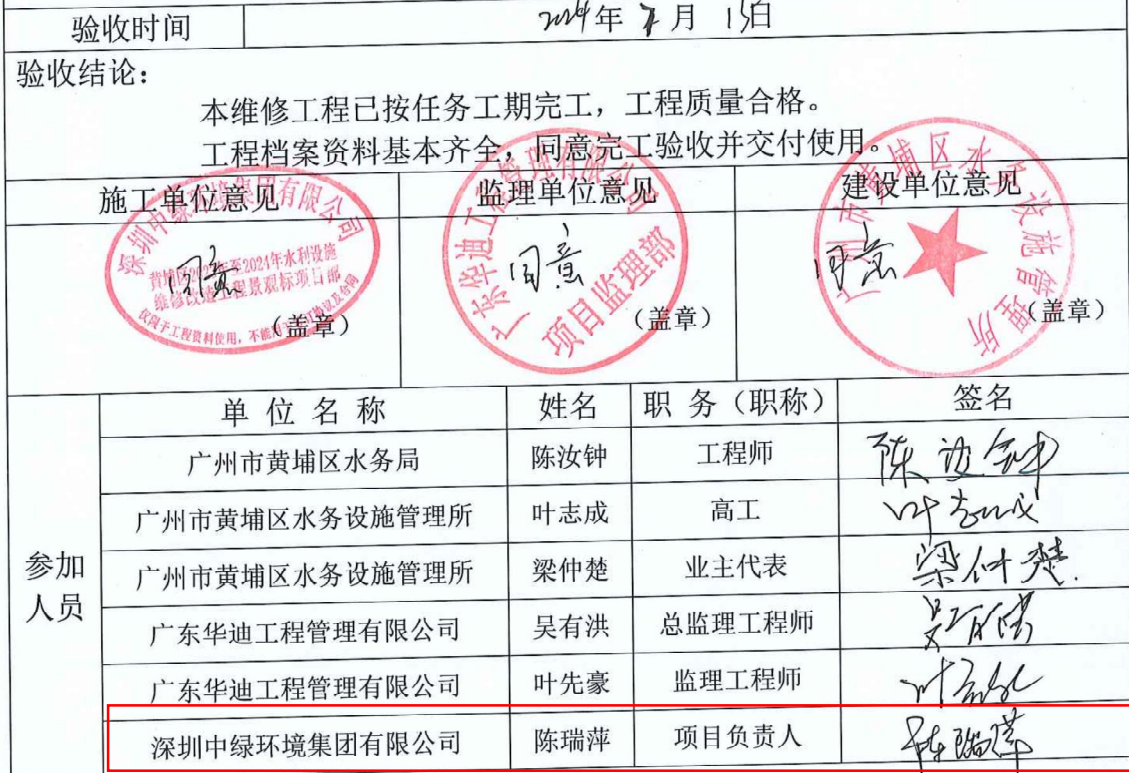 验收时间 2024年 7月 15日
验收结论：
本维修工程已按任务工期完工，工程质量合格。
工程档案资料基本齐全，同意完工验收并交付使用。
施工单位意见 监理单位意见 建设单位意见
深圳中绿环境集团有限公司
黄埔区2023年至2024年水利设施
维修改造工程景观标项目部
仅限于工程资料使用，不能用于签订协议及合同
同意
（盖章）
广东华迪工程管理有限公司
项目监理部
同意
（盖章）
广州市黄埔区水务设施管理所
同意
（盖章）
参加
人员
单位名称 姓名 职务（职称） 签名
广州市黄埔区水务局 陈汝钟 工程师 陈汝钟
广州市黄埔区水务设施管理所 叶志成 高工 叶志成
广州市黄埔区水务设施管理所 梁仲楚 业主代表 梁仲楚
广东华迪工程管理有限公司 吴有洪 总监理工程师 吴有洪
广东华迪工程管理有限公司 叶先豪 监理工程师
深圳中绿环境集团有限公司 陈瑞萍 项目负责人 陈瑞萍